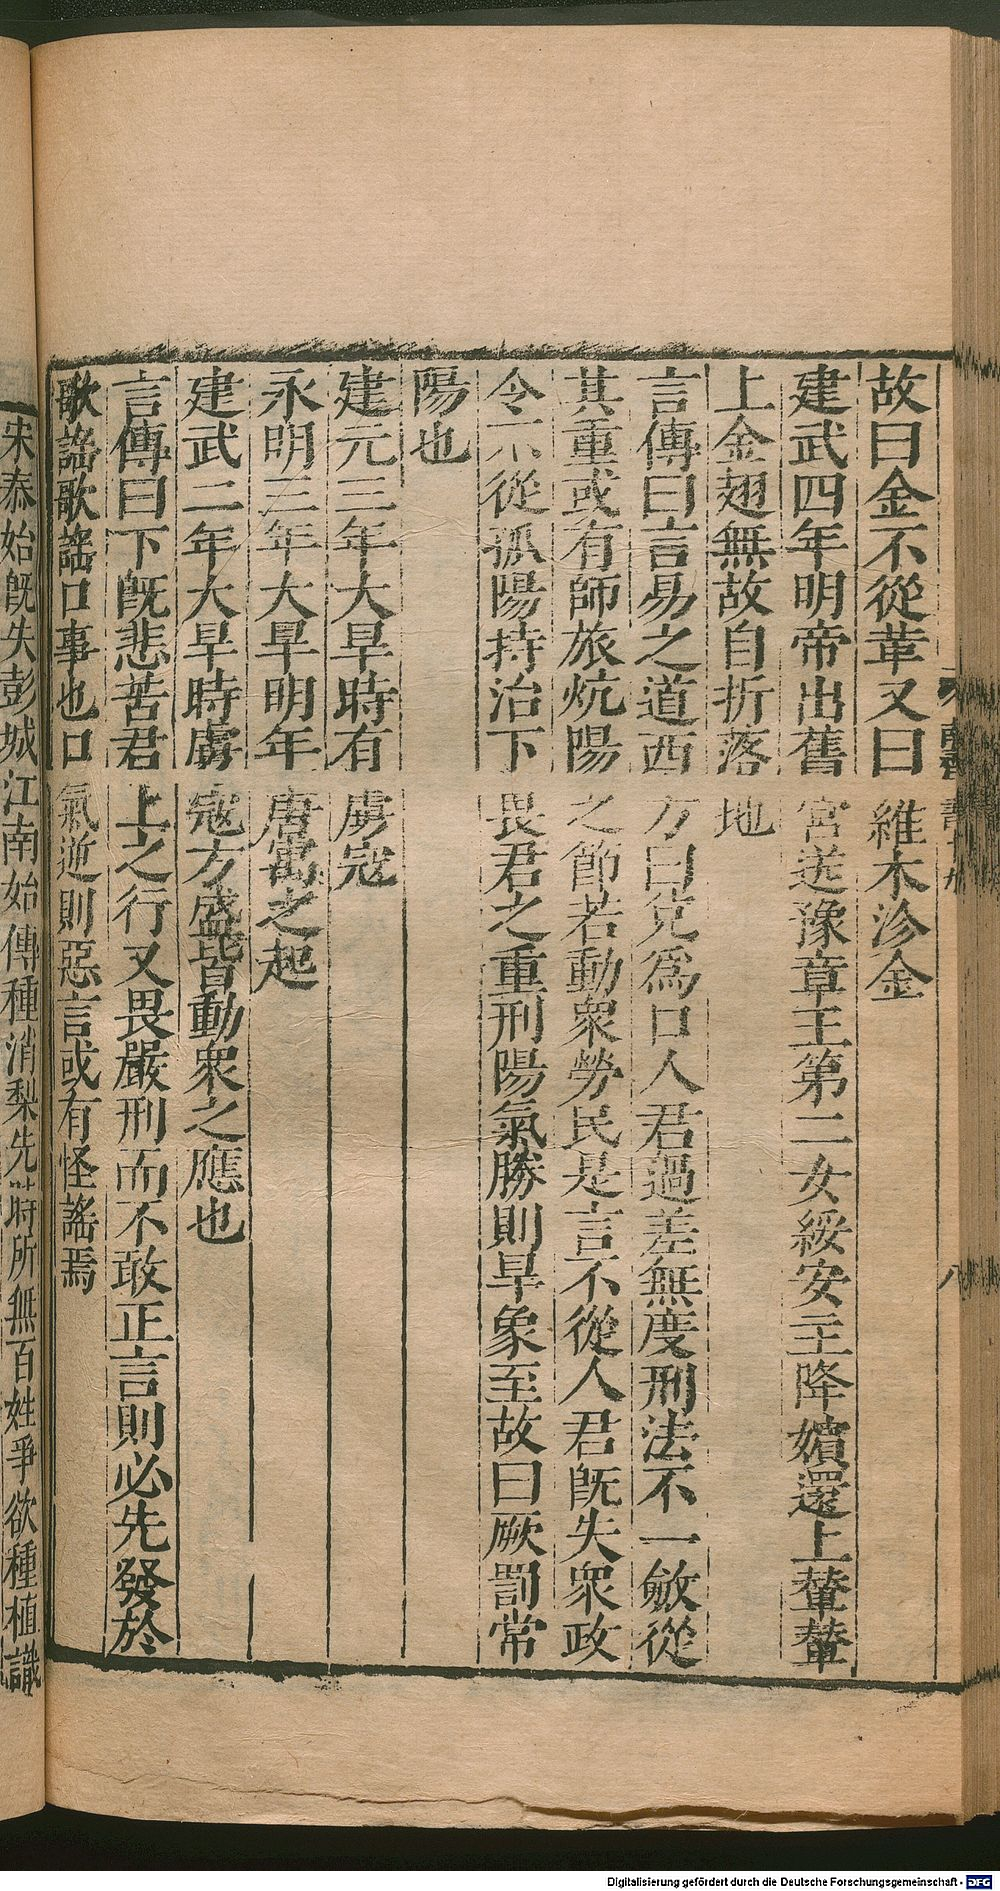 故曰金不從革又曰維木沴金
建武四年明帝出舊宮送豫章王第二女綏安主降嬪還上輦輦
上金翅無故自折落地
言傳曰言易之道西方曰兌爲口人君過差無度刑法不一斂從
其重或有師旅炕陽之節若動衆勞民是言不從人君旣失衆政
令不從孤陽持治下畏君之重刑陽氣勝則旱象至故曰厥罰常
陽也
建元三年大旱時有虜寇
永明三年大旱明年唐㝢之起
建武二年大旱時虜寇方盛皆動衆之應也
言傳曰下旣悲苦君上之行又畏嚴刑而不敢正言則必先發於
歌謠歌謠口事也口氣逆則惡言或有怪謠焉
宋泰始旣失彭城江南始傳種消梨先時所無百姓爭欲種植識
八
Digitalisierung gefördert durch die Deutsche Forschungsgemeinschaft - DFG